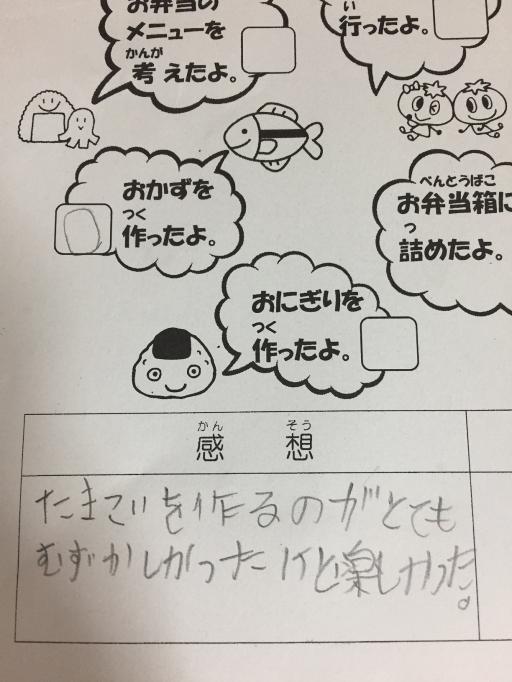 お弁当の
メニューを
かんが
考えたよ。
い
行ったよ。
おかずを
つく
作ったよ。
べんとうばこ
お弁当箱に
つ
詰めたよ。
おにぎりを
つく
作ったよ。
かん そう
感想
たまごいを作るのがとても
むずかしかったけど楽しかった。